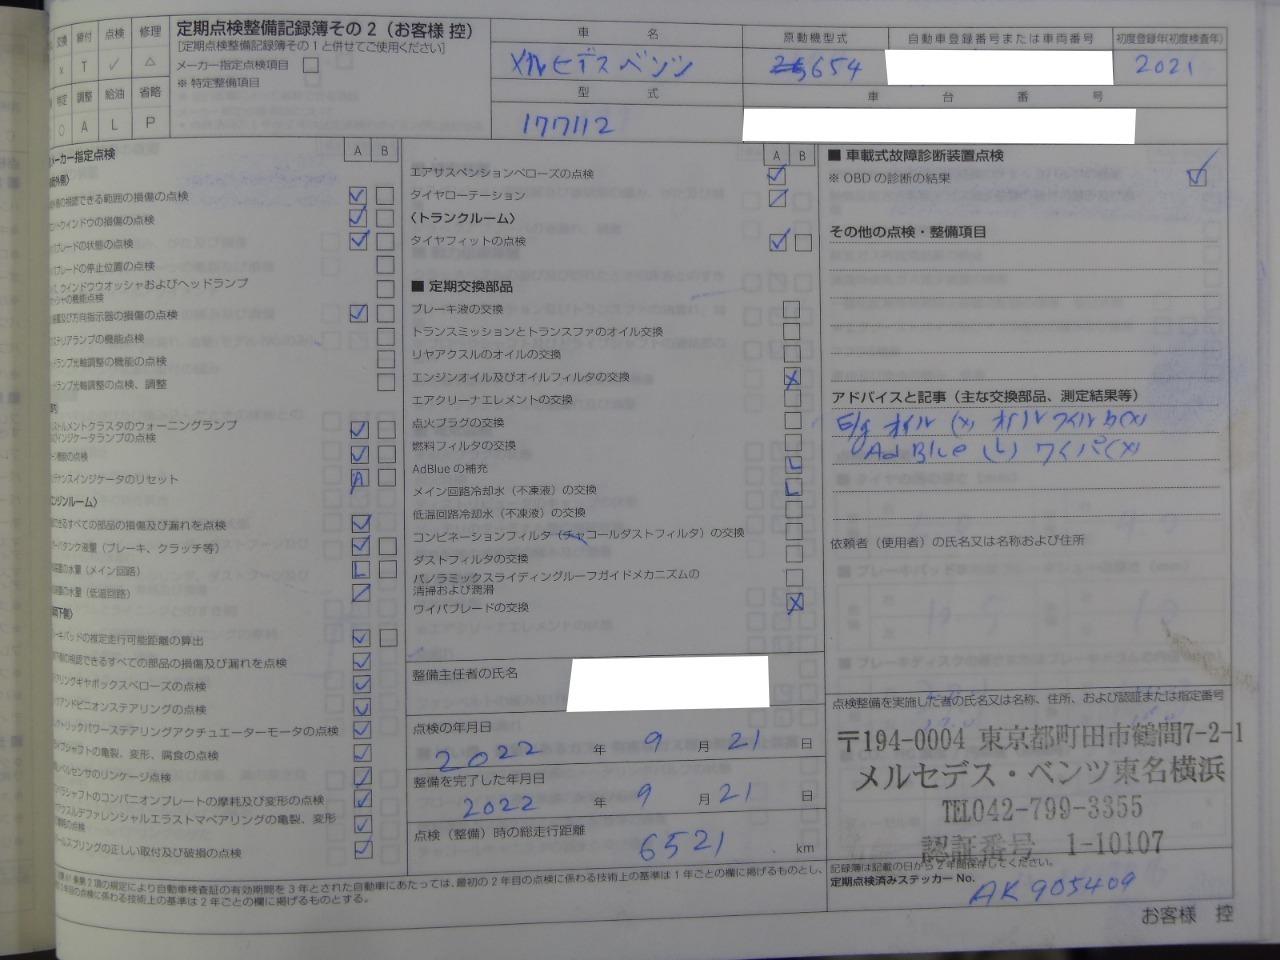 交換 締付 点検 修理
× T ✓ △
特定 調整 給油 省略
○ A L P
定期点検整備記録簿その2(お客様 控)
[定期点検整備記録簿その1と併せてご使用ください]
メーカー指定点検項目 □
※ 特定整備項目
車 名
メルセデスベンツ
原動機型式
654
自動車登録番号または車両番号
初度登録年(初度検査年)
2021
型 式
177112
車 台 番 号
メーカー指定点検
A B
の視認できる範囲の損傷の点検
ウインドウの損傷の点検
ブレードの状態の点検
ブレードの停止位置の点検
ウインドウウオッシャおよびヘッドランプ
シャの機能点検
及び方向指示器の損傷の点検
テリアランプの機能点検
ランプ光軸調整の機能の点検
ランプ光軸調整の点検、調整
ストルメントクラスタのウォーニングランプ
インジケータランプの点検
機能の点検
テナンスインジケータのリセット A
ンジンルーム〉
きるすべての部品の損傷及び漏れを点検
タンク液量(ブレーキ、クラッチ等)
の水量(メイン回路) L
の水量(低温回路)
下側〉
ーキパッドの推定走行可能距離の算出
の視認できるすべての部品の損傷及び漏れを点検
アリングギヤボックスベローズの点検
アンドピニオンステアリングの点検
トリックパワーステアリングアクチュエーターモータの点検
イブシャフトの亀裂、変形、腐食の点検
レベルセンサのリンケージ点検
ラシャフトのコンパニオンプレートの摩耗及び変形の点検
アクスルデファレンシャルエラストマベアリングの亀裂、変形
の点検
ールスプリングの正しい取付及び破損の点検
A B
エアサスペンションベローズの点検
タイヤローテーション
〈トランクルーム〉
タイヤフィットの点検
■ 定期交換部品
ブレーキ液の交換
トランスミッションとトランスファのオイル交換
リヤアクスルのオイルの交換
エンジンオイル及びオイルフィルタの交換 X
エアクリーナエレメントの交換
点火プラグの交換
燃料フィルタの交換
AdBlue の補充 L
メイン回路冷却水(不凍液)の交換 L
低温回路冷却水(不凍液)の交換
コンビネーションフィルタ(チャコールダストフィルタ)の交換
ダストフィルタの交換
パノラミックスライディングルーフガイドメカニズムの
清掃および潤滑
ワイパブレードの交換 X
整備主任者の氏名
点検の年月日
2022 年 9 月 21 日
整備を完了した年月日
2022 年 9 月 21 日
点検(整備)時の総走行距離
6521 km
■ 車載式故障診断装置点検
※ OBD の診断の結果
その他の点検・整備項目
アドバイスと記事(主な交換部品、測定結果等)
E/g オイル (X) オイルフィルタ(X)
Ad Blue (L) ワイパ(X)
依頼者(使用者)の氏名又は名称および住所
点検整備を実施した者の氏名又は名称、住所、および認証または指定番号
〒194-0004 東京都町田市鶴間7-2-1
メルセデス・ベンツ東名横浜
TEL042-799-3355
認証番号 1-10107
記録簿は記載の日から2年間保存してください。
定期点検済みステッカー No.
AK905409
2 項の規定により自動車検査証の有効期間を3年とされた自動車にあたっては、最初の2年目の点検に係わる技術上の基準は1年ごとの欄に掲げるものとし、
年目の点検に係わる技術上の基準は2年ごとの欄に掲げるものとする。
お客様 控